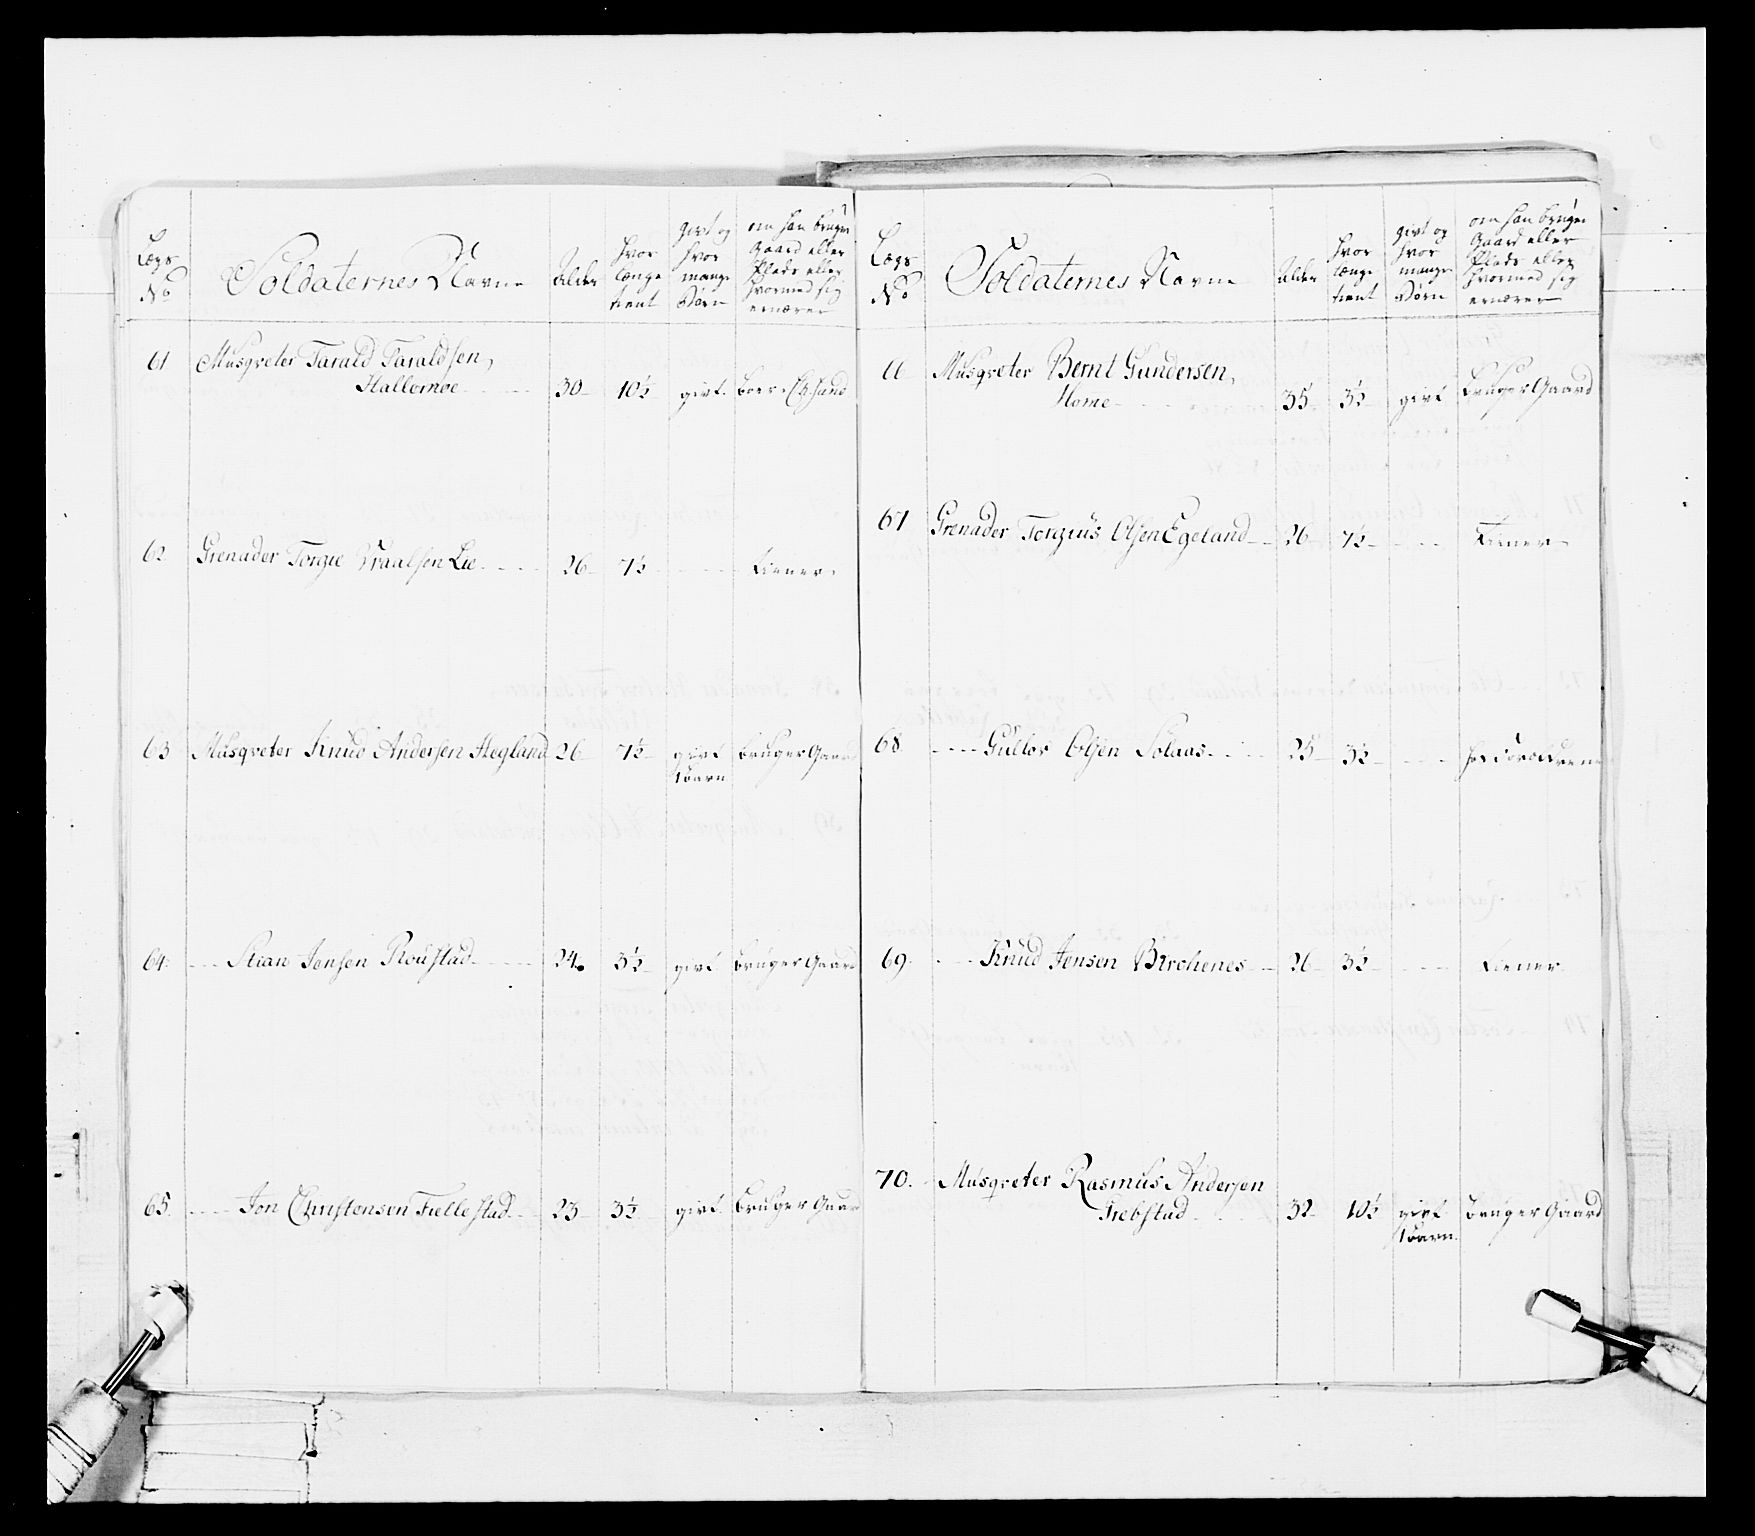 Lægs
No
Soldaternes Navne
Alder
hvor
længe
tient
givt og
hvor
mange
Børn
om han bruger
Gaard eller
Plads eller
hvormed sig
ernærer
61 Musqveter Tarald Taraldsen,
Hallomoe 30 10½ givt boer i Ch:sand
62 Grenader Torgie Vraalsen Lie 26 7½ tiener
63 Musqveter Knud Andersen Hegland 26 7½ givt bruger Gaard
1 barn
64 Stian Jensen Roustad 24 3½ givt bruger Gaard
65 Jon Christensen Fiellestad 23 3½ givt bruger Gaard
Lægs
No
Soldaternes Navne
Alder
hvor
længe
tient
givt og
hvor
mange
Børn
om han bruger
Gaard eller
Plads eller
hvormed sig
ernærer
66 Musqveter Bernt Gundersen,
Home 35 3½ givt bruger Gaard
67 Grenader Torgius Olsen Egeland 26 7½ tiener
68 Gullov Olsen Solaas 25 3½ hos
69 Knud Jensen Birchenes 26 3½ tiener
70. Musqveter Rasmus Andersen
Trebstad 32 10½ givt bruger Gaard
1 barn